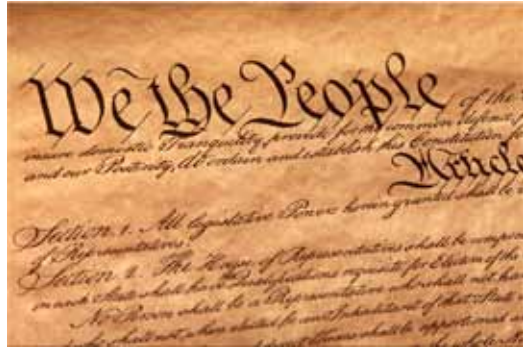 We the People of the
insure domestic Tranquility, provide for the common defence,
and our Posterity, do ordain and establish this Constitution for
Article
Section 1. All legislative Powers herein granted shall be
of Representatives.
Section 2. The House of Representatives shall be composed
in each State shall have Qualifications requisite for Electors of the
No Person shall be a Representative who shall not have
shall not, when elected, be an Inhabitant of that State
shall be apportioned